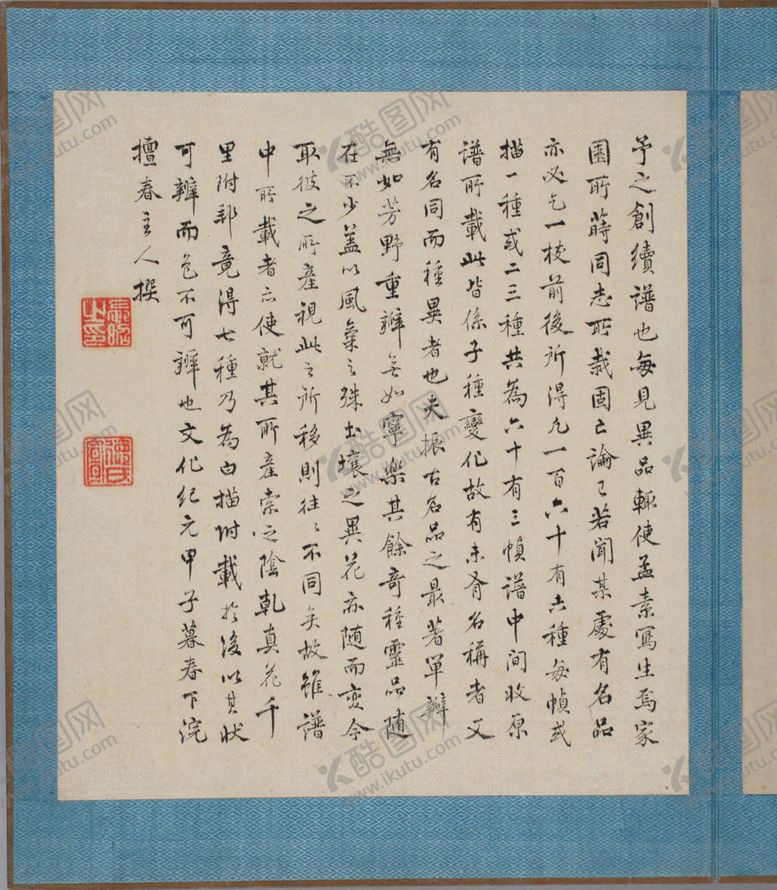 予之創續譜也每見異品輒使孟素寫生焉家
園所蒔同志所栽固已論已若聞某處有名品
亦必乞一枝前後所得凡一百六十有六種每幀或
描一種或二三種共為六十有三幀譜中间收原
譜所載此皆係子種變化故有未肴名稱者又
有名同而種異者也夫振古名品之最著單瓣
無如芳野重瓣無如寧樂其餘奇種靈品随
在不少盖以風氣之殊土壤之異花亦随而變今
取彼之所產視此之所移則往〻不同矣故雖譜
中所載者亦使就其所產索之陰乾真花千
里附郵竟得七種乃為白描附載於後以其狀
可辨而色不可辨也文化紀元甲子暮春下浣
擅春主人撰
酷图网
www.ikutu.com